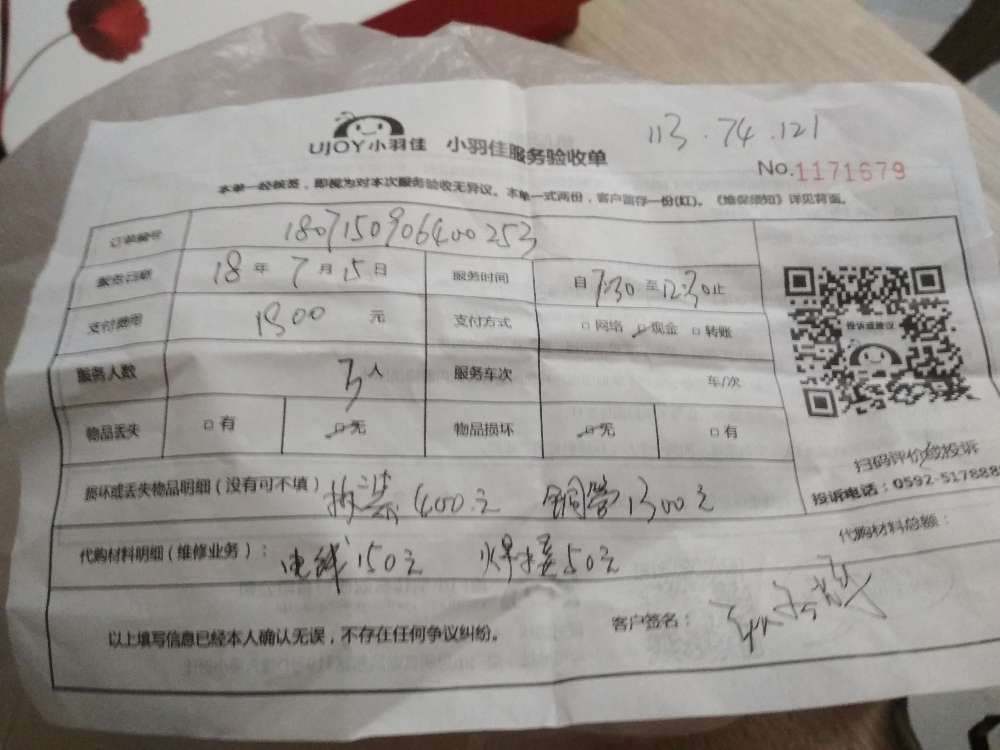 113.74.121
UJOY小羽佳 小羽佳服务验收单
No.1171679
本单一经核签，即视为对本次服务验收无异议。本单一式两份，客户留存一份(红)。《维保须知》详见背面。
订单编号 1807150906400253
服务日期 18年7月15日 服务时间 自7:30至12:30止
支付费用 1900元 支付方式 □网络 □现金 □转账
服务人数 3人 服务车次 车/次
物品丢失 □有 □无 物品损坏 □无 □有
投诉或建议
扫码评价或投诉
投诉电话：0592-5178888
损坏或丢失物品明细（没有可不填） 拆装400元 铜管1300元
代购材料明细（维修业务）： 电线150元 焊接50元
代购材料总额：
以上填写信息已经本人确认无误，不存在任何争议纠纷。 客户签名：